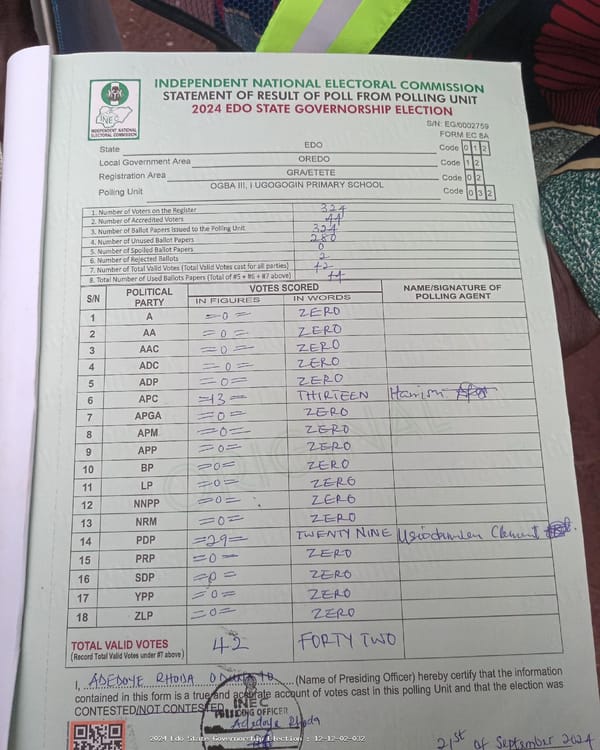 INDEPENDENT NATIONAL ELECTORAL COMMISSION
STATEMENT OF RESULT OF POLL FROM POLLING UNIT
2024 EDO STATE GOVERNORSHIP ELECTION
INEC
INDEPENDENT NATIONAL ELECTORAL COMMISSION
S/N: EG/0002759
FORM EC 8A
State EDO Code 0 1 2
Local Government Area OREDO Code 1 2
Registration Area GRA/ETETE Code 0 2
Polling Unit OGBA III, I UGOGOGIN PRIMARY SCHOOL Code 0 3 2
1. Number of Voters on the Register 324
2. Number of Accredited Voters 44
3. Number of Ballot Papers Issued to the Polling Unit 324
4. Number of Unused Ballot Papers 280
5. Number of Spoiled Ballot Papers 0
6. Number of Rejected Ballots 2
7. Number of Total Valid Votes (Total Valid Votes cast for all parties) 42
8. Total Number of Used Ballots Papers (Total of #5 + #6 + #7 above) 44
S/N POLITICAL PARTY VOTES SCORED NAME/SIGNATURE OF POLLING AGENT
IN FIGURES IN WORDS
1 A =0= ZERO
2 AA =0= ZERO
3 AAC =0= ZERO
4 ADC =0= ZERO
5 ADP =0= ZERO
6 APC =13= THIRTEEN
7 APGA =0= ZERO
8 APM =0= ZERO
9 APP =0= ZERO
10 BP =0= ZERO
11 LP =0= ZERO
12 NNPP =0= ZERO
13 NRM =0= ZERO
14 PDP =29= TWENTY NINE Clement
15 PRP =0= ZERO
16 SDP =0= ZERO
17 YPP =0= ZERO
18 ZLP =0= ZERO
TOTAL VALID VOTES 42 FORTY TWO
(Record Total Valid Votes under #7 above)
ORIGINAL
I, ADEDOYE RHODA (Name of Presiding Officer) hereby certify that the information
contained in this form is a true and accurate account of votes cast in this polling Unit and that the election was
CONTESTED/NOT CONTESTED
INEC
PRESIDING OFFICER
Adedoye Rhoda
21st of September 2024
2024 Edo State Governorship Election : 12-12-02-032